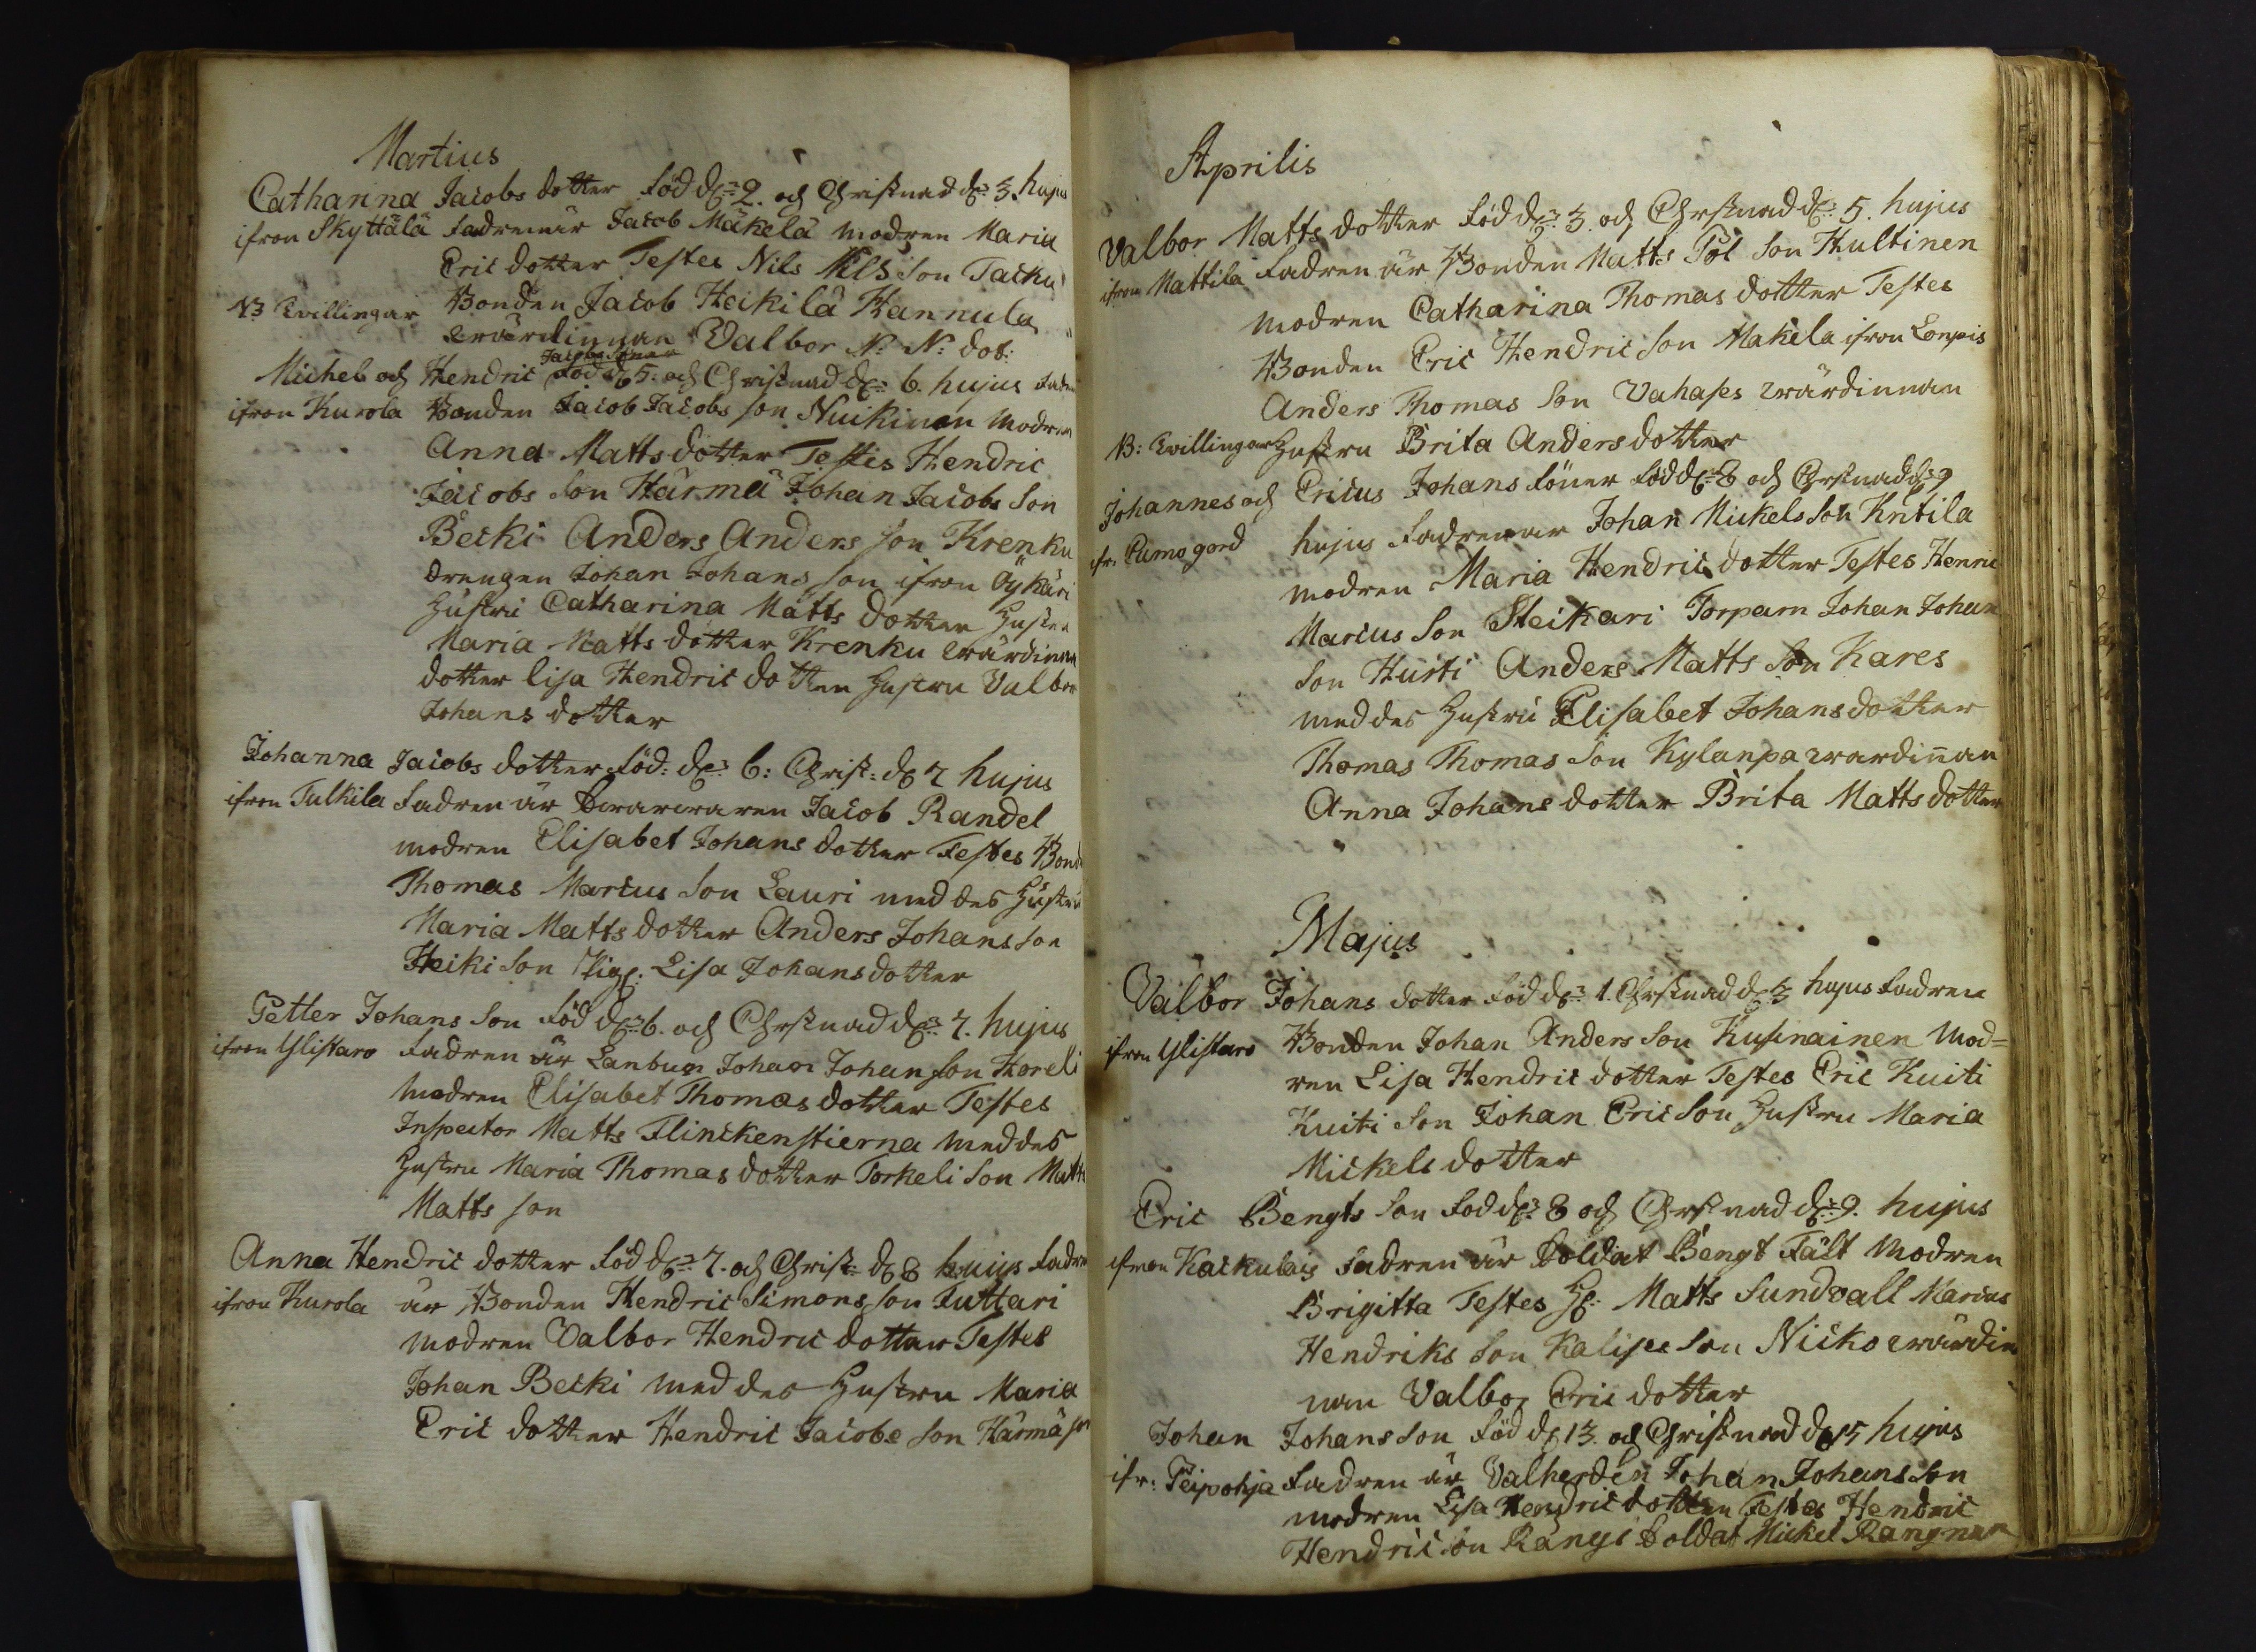 Martius
Catharina Jacobs dotter född d: 2. och Christnad d: 3. hujus
ifron Skyttälä fadren är Jacob Mäkelä modren Maria
Eric dotter Testes Nils Nils son Tacku
NB Twillingar Bonden Jacob Heikilä Hannula
wärdinnan Valbor N: N: dot:
Jacobs söner
Michel och Hendric född d 5. och Christnad d: 6. hujus fadren
ifron Kurola Bonden Jacob Jacobs son Nuikinen modren
Anna Matts dotter Testis Hendric
Jacobs son Härmä Johan Jacobs son
Becki Anders Anders son Krenku
drengen Johan Johans son ifron Öykäri
Hustru Catharina Matts dotter Hustru
Maria Matts dotter Krenku wärdinna
dotter lisa Hendric dotter Hustru Valbor
Johans dotter
Johanna Jacobs dotter föd: d: 6: Christ: d 7 hujus
ifron Tulkila fadren är Jacob Randel
modren Elisabet Johans dotter Testes Bond
Thomas Marcus son Lauri med des Hustru
Maria Matts dotter Anders Johans son
Heiki son Pig: Lisa Johans dotter
Petter Johans son föd d: 6. och Christnad d: 7. hujus
ifron Ylistaro fadren är Lanbun Johan Johan son Horeli
modren Elisabet Thomas dotter Testes
Inspector Matts Flinckenstierna med des
Hustru Maria Thomas dotter Torkeli son Matts
Matts son
Anna Hendric dotter föd d: 7. och Christ: d 8 hujus fadren
ifron Kurola är Bonden Hendric Simons son Juttari
modren Valbor Hendric dotter Testes
Johan Becki med des Hustru Maria
Eric dotter Hendric Jacobs son Härmä son
Aprilis
Valbor Matts dotter föd d: 3. och Christnad d: 5. hujus
ifron Mattila fadren är Bonden Matts Pol son Hultinen
modren Catharina Thomas dotter Testes
Bonden Eric Hendric son Makela ifron Lonpis
Anders Thomas son Vahases wärdinnan
NB: Twillingar Hustru Brita Anders dotter
Johannes och Ericus Johans söner föd d: 8 och Christnad d: 9
ifr: Cumo gord hujus fadren är Johan Mickels son Kntila
modren Maria Hendric dotter Testes Henric
Marcus son Steikari Torparn Johan Johan
son Hurti Anders Matts son Kares
med des Hustru Elisabet Johans dotter
Thomas Thomas son Kylanpa wardinnan
Anna Johans dotter Brita Matts dotter
Majus
Valbor Johans dotter föd d: 1. Christnad d 3 hujus fadren
ifron Ylistaro Bonden Johan Anders son Kusinainen Mod=
ren Lisa Hendric dotter Testes Eric Kuiti
Kuiti son Johan Eric son Hustru Maria
Mickels dotter
Eric Bengts son föd d: 8 och Christnad d: 9. hujus
ifron Kackulais fadren är Soldat Bengt Fält Modren
Brigitta Testes H: Matts Sundvall Marcus
Hendriks son Kalises son Nicko wärdin
nan Valbor Eric dotter
Johan Johans son föd d 13. och Christnad d 15 hujus
ifr: Peipohja fadren är Valherden Johan Johans son
modren Lisa Hendric dotter Testes Hendric
Hendric son Rangi Soldat Mickel Rangnar